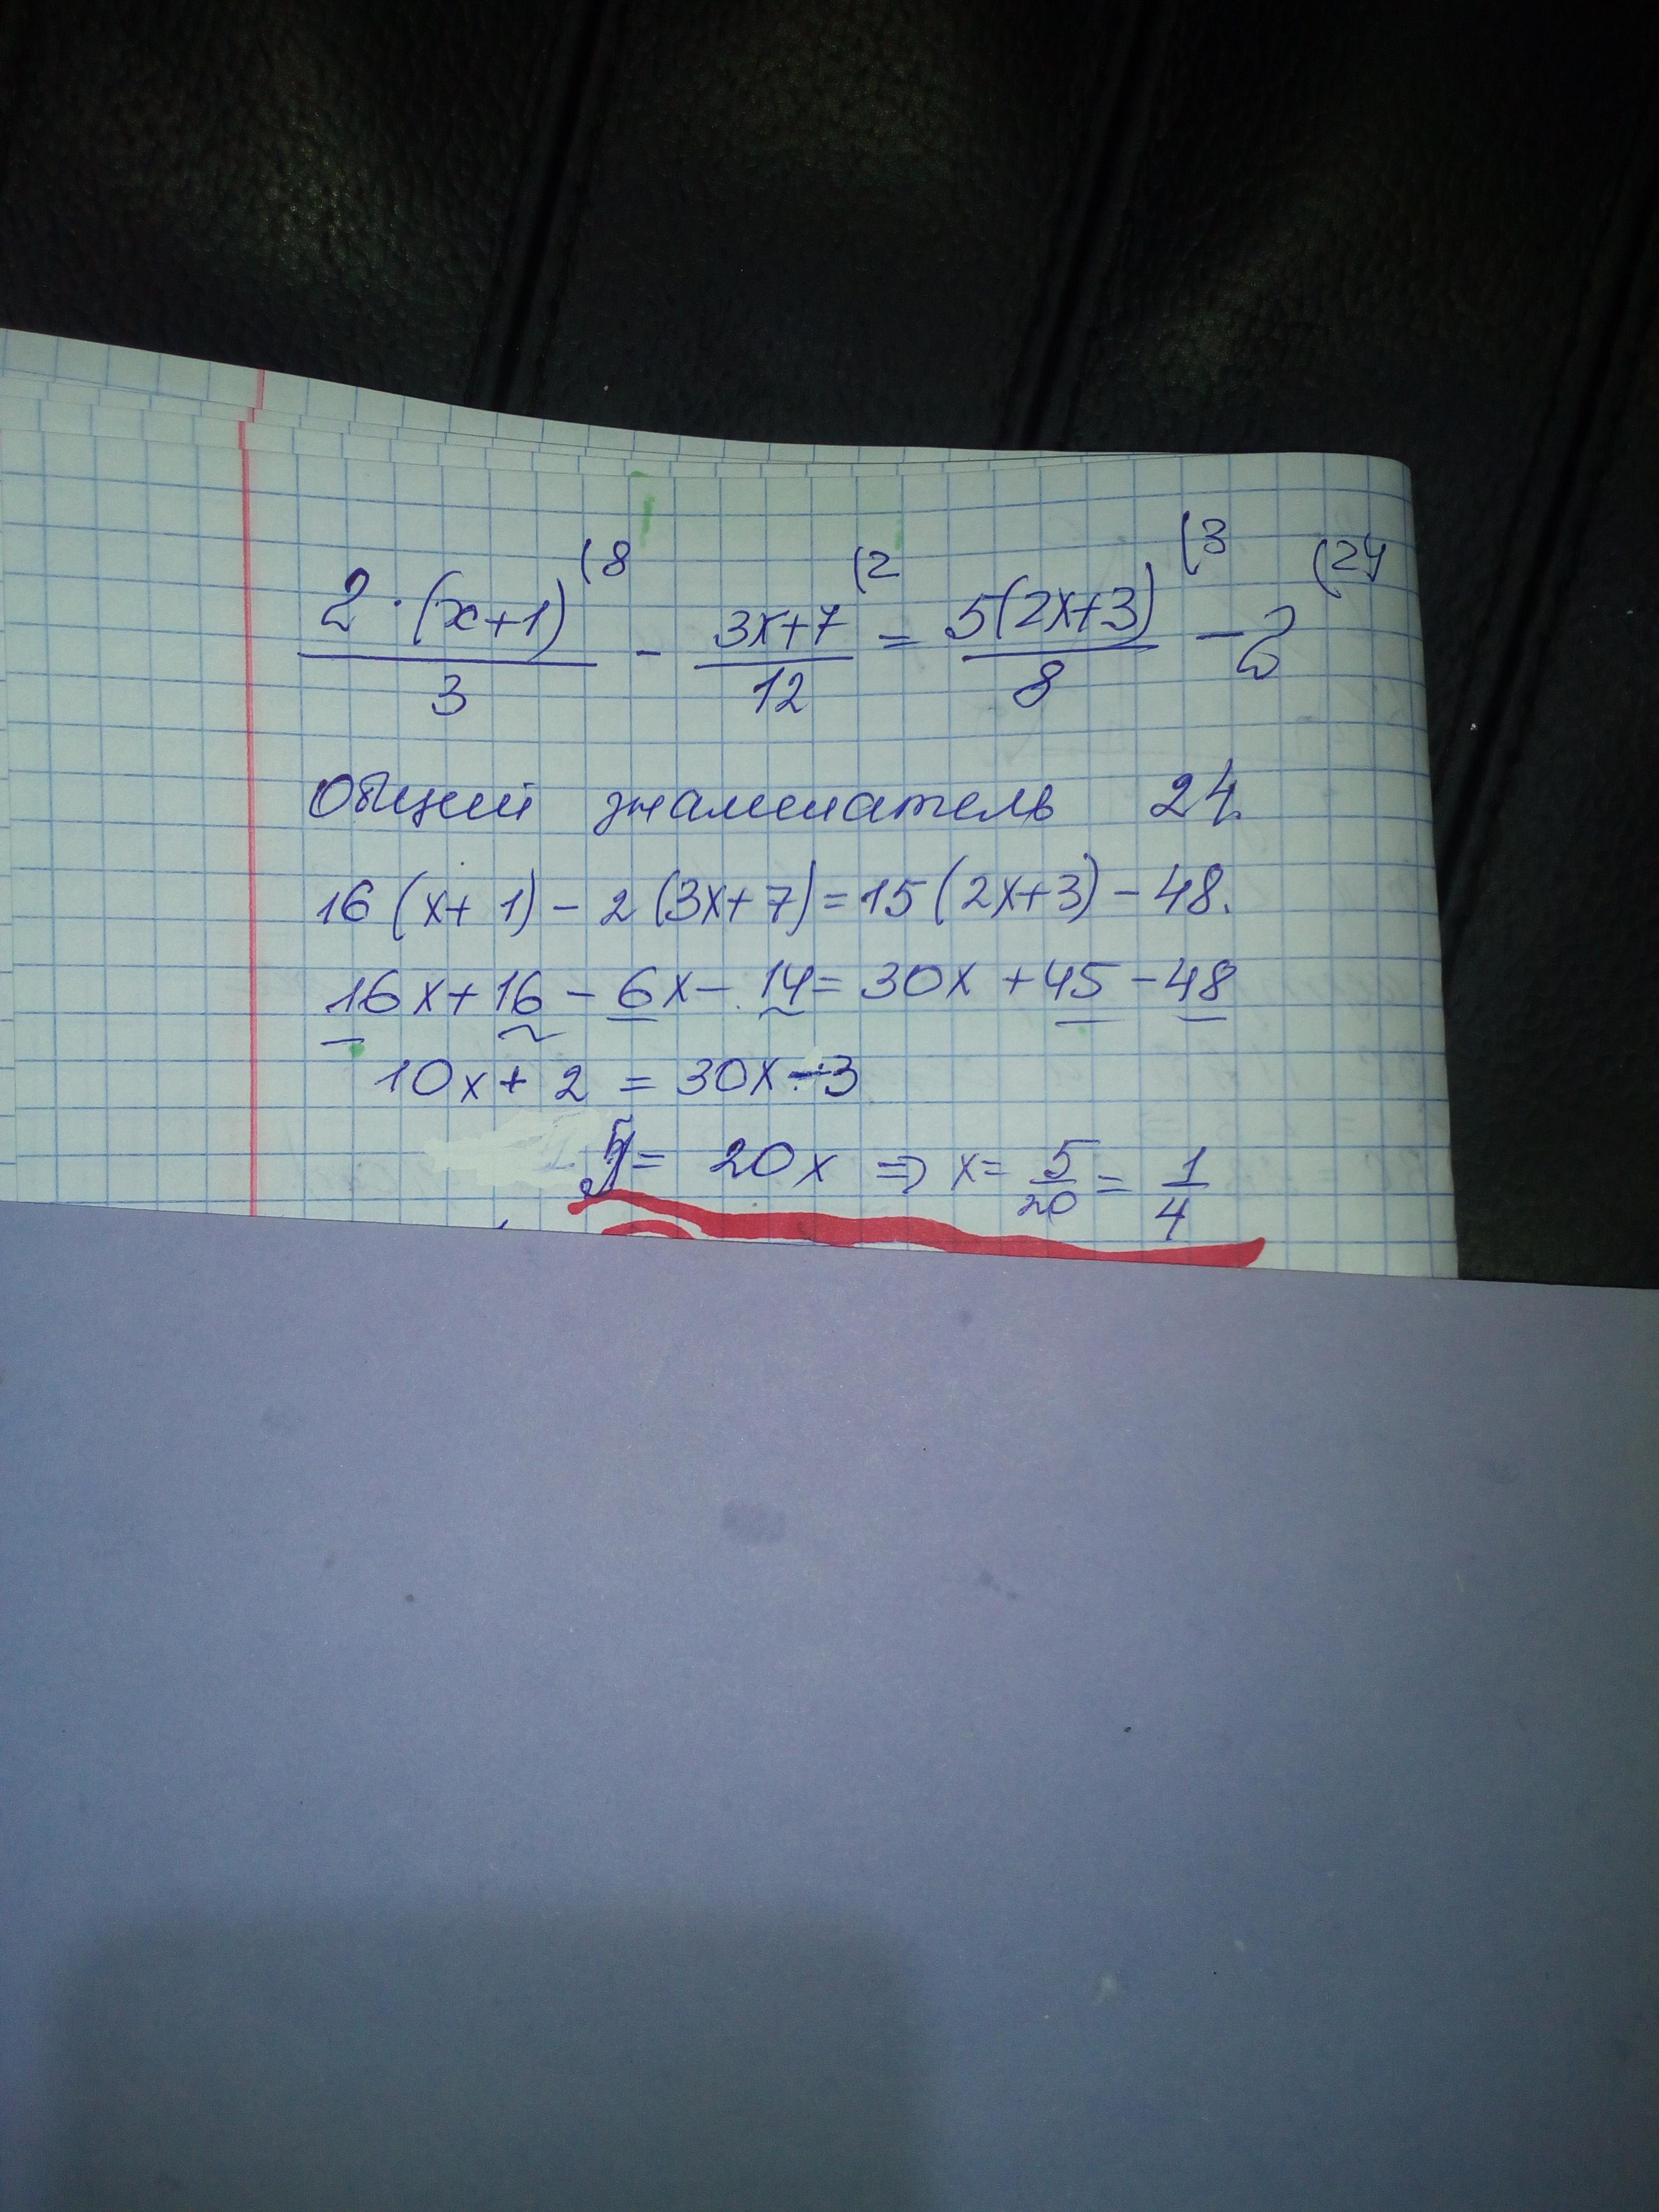 2·(x+1)/3 (8 - 3x+7/12 (2 = 5(2x+3)/8 (3 - 2 (24
Общий знаменатель 24.
16(x+1) - 2(3x+7) = 15(2x+3) - 48.
16x + 16 - 6x - 14 = 30x + 45 - 48
10x + 2 = 30x - 3
5 = 20x ⇒ x = 5/20 = 1/4